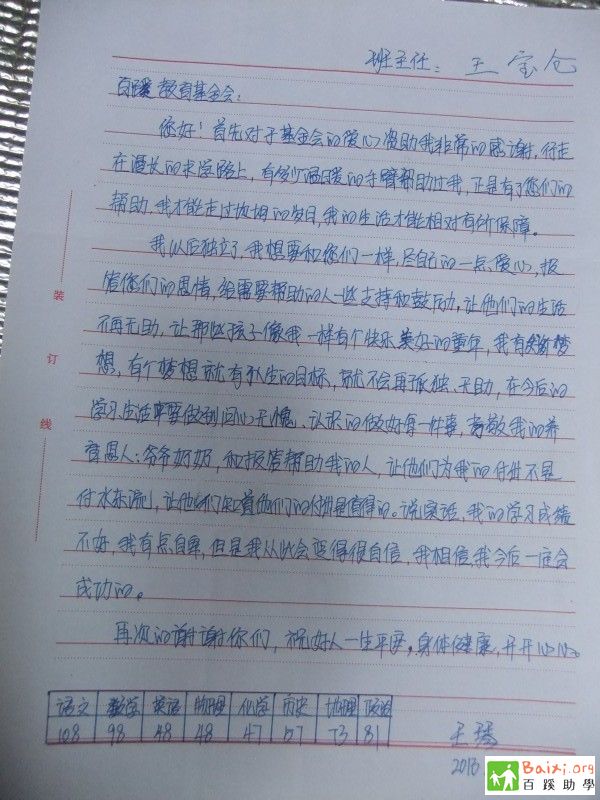 班主任：王宝仓
百蹊教育基金会：
你好！首先对于基金会的爱心资助我非常的感谢，行走
在漫长的求学路上，有多少温暖的手臂帮助过我，正是有了您们的
帮助，我才能走过坎坷的岁月，我的生活才能相对有所保障。
我以后独立了，我想要和你们一样，尽自己的一点爱心，报
答你们的恩情，给需要帮助的人一些支持和鼓励，让他们的生活
不再无助，让那些孩子像我一样有个快乐美好的童年，我有梦
想，有个梦想就有人生的目标，就不会再孤独、无助，在今后的
学习生活中要做到问心无愧、认识的做好每一件事，孝敬我的养
育恩人：爷爷奶奶，和报答帮助我的人，让他们为我的付出不是
付水东流，让他们知道他们的付出是值得的。说实话，我的学习成绩
不好，我有点自卑，但是我从此会变得很自信，我相信我今后一定会
成功的。
再次的谢谢你们，祝好人一生平安，身体健康，开开心心。
装
订
线
语文 数学 英语 物理 化学 历史 地理 政治
108 98 48 48 47 57 73 81
王
2013
Baixi.org
百蹊助學